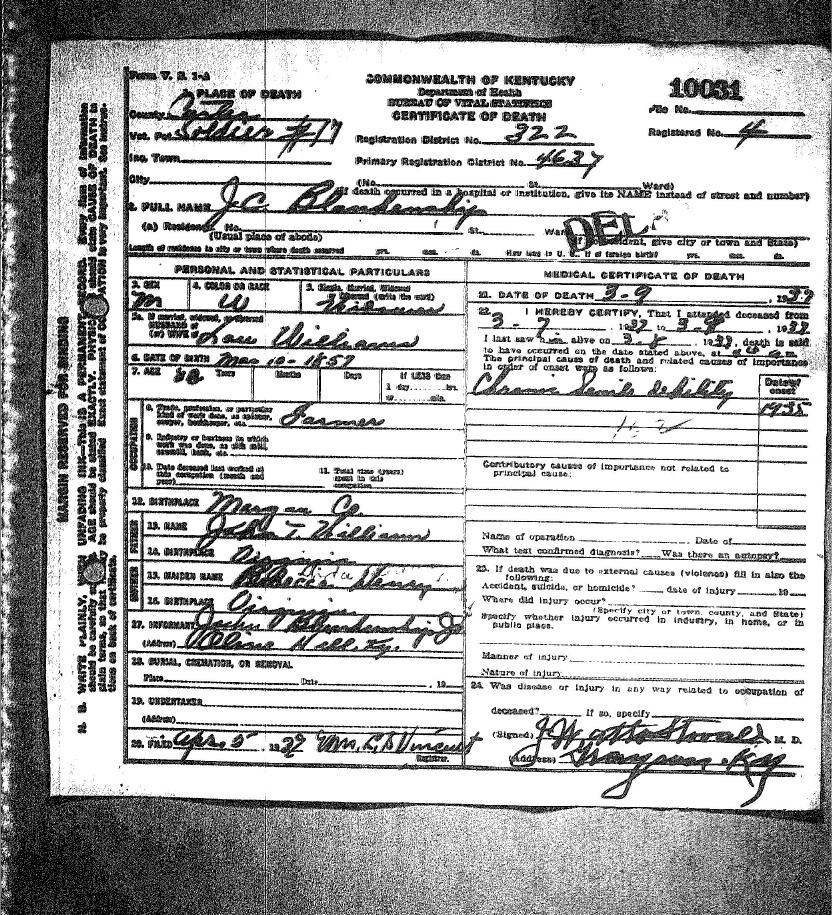 Form V. S. 1-A
COMMONWEALTH OF KENTUCKY
Department of Health
BUREAU OF VITAL STATISTICS
CERTIFICATE OF DEATH
10031
File No.
Registered No. 4
1. PLACE OF DEATH
County Carter
Vot. Pct. Soldier #17
Inc. Town
City
Registration District No. 322
Primary Registration District No. 4637
(No. St. Ward)
(If death occurred in a hospital or institution, give its NAME instead of street and number)
2. FULL NAME J C Blankenship
DEL
(a) Residence. No. St. Ward
(Usual place of abode) (If nonresident, give city or town and State)
Length of residence in city or town where death occurred yrs. mos. ds. How long in U. S., if of foreign birth? yrs. mos. ds.
PERSONAL AND STATISTICAL PARTICULARS
3. SEX M
4. COLOR OR RACE W
5. Single, Married, Widowed
(write the word)
5a. If married, widowed, or divorced
HUSBAND of
(or) WIFE of Williams
6. DATE OF BIRTH Mar 10 - 1857
7. AGE Years Months Days If LESS than
1 day hrs.
or min.
OCCUPATION
8. Trade, profession, or particular
kind of work done, as spinner,
sawyer, bookkeeper, etc. Farmer
9. Industry or business in which
work was done, as silk mill,
sawmill, bank, etc.
10. Date deceased last worked at
this occupation (month and
year)
11. Total time (years)
spent in this
occupation
12. BIRTHPLACE Morgan Co.
FATHER
13. NAME John T. Williams
14. BIRTHPLACE Virginia
MOTHER
15. MAIDEN NAME Rebecca Henry
16. BIRTHPLACE Virginia
17. INFORMANT John Blankenship Jr
(Address) Olive Hill, Ky.
18. BURIAL, CREMATION, OR REMOVAL
Place Date 19
19. UNDERTAKER
(Address)
20. FILED Apr. 5 19 Wm. C. D. Vincent
Registrar.
MEDICAL CERTIFICATE OF DEATH
21. DATE OF DEATH 3-9, 1937
22. I HEREBY CERTIFY, That I attended deceased from
3 - 7, 1937 to 3-8, 1937
I last saw him alive on 3-8, 1937, death is said
to have occurred on the date stated above, at m.
The principal cause of death and related causes of importance
in order of onset were as follows:
Chronic Senile debility
Date of
onset
1935
162
Contributory causes of importance not related to
principal cause:
Name of operation Date of
What test confirmed diagnosis? Was there an autopsy?
23. If death was due to external causes (violence) fill in also the
following:
Accident, suicide, or homicide? date of injury 19
Where did injury occur?
(Specify city or town, county, and State)
Specify whether injury occurred in industry, in home, or in
public place.
Manner of injury
Nature of injury
24. Was disease or injury in any way related to occupation of
deceased? If so, specify
(Signed) J Watts Stovall M. D.
(Address) Grayson Ky
MARGIN RESERVED FOR BINDING
N. B. WRITE PLAINLY, UNFADING INK—THIS IS A PERMANENT RECORD. Every item of information
should be carefully AGE should be stated EXACTLY. should state CAUSE OF DEATH in
plain terms, so that may be properly classified. Exact statement of is very important. See instruc-
tions on back of certificate.